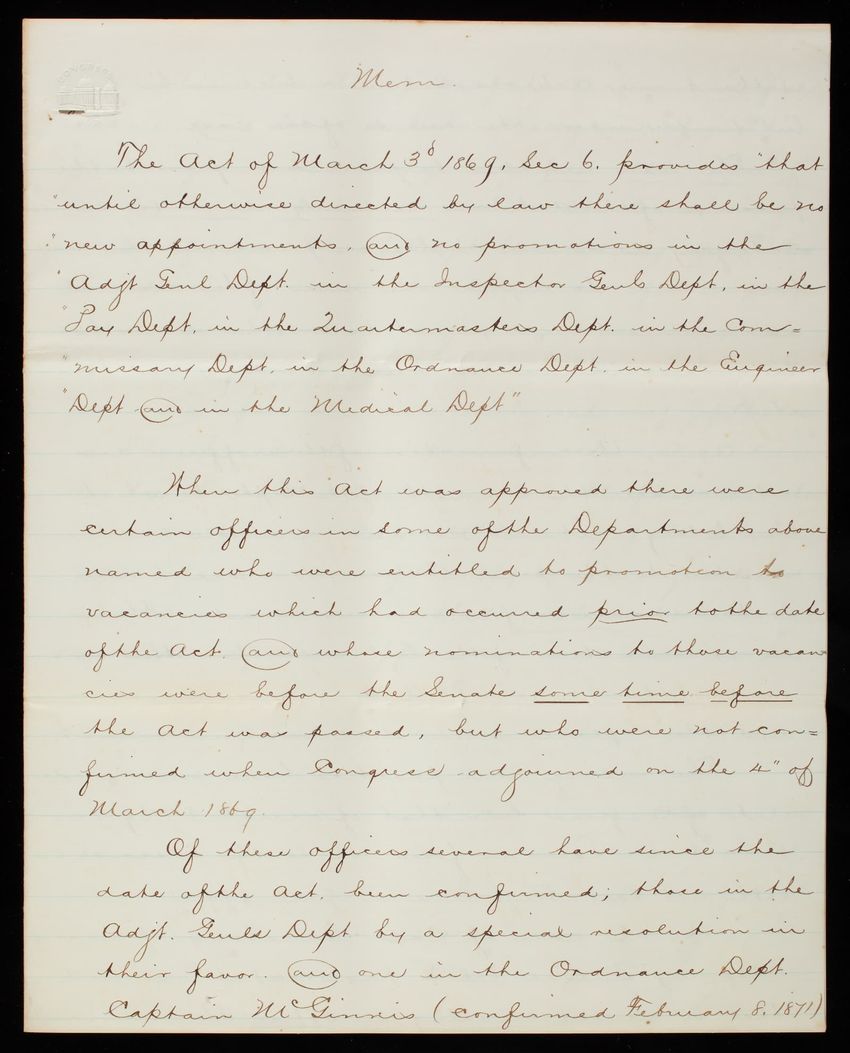 CONGRESS
Mem.
The Act of March 3d 1869, Sec 6. provides "that
"until otherwise directed by law there shall be no
"new appointments, and no promotions in the
"Adjt Genl Dept. in the Inspector Genls Dept, in the
"Pay Dept, in the Quartermasters Dept. in the Com=
"missary Dept. in the Ordnance Dept. in the Engineer
"Dept and in the Medical Dept"
When this Act was approved there were
certain officers in some of the Departments above
named who were entitled to promotion to
vacancies which had occurred prior to the date
of the Act. and whose nominations to those vacan
cies were before the Senate some time before
the Act was passed, but who were not con=
firmed when Congress adjourned on the 4" of
March 1869.
Of these officers several have since the
date of the Act. been confirmed; those in the
Adjt. Genls Dept by a special resolution in
their favor. and one in the Ordnance Dept.
Captain McGinnis (confirmed February 8. 1871)